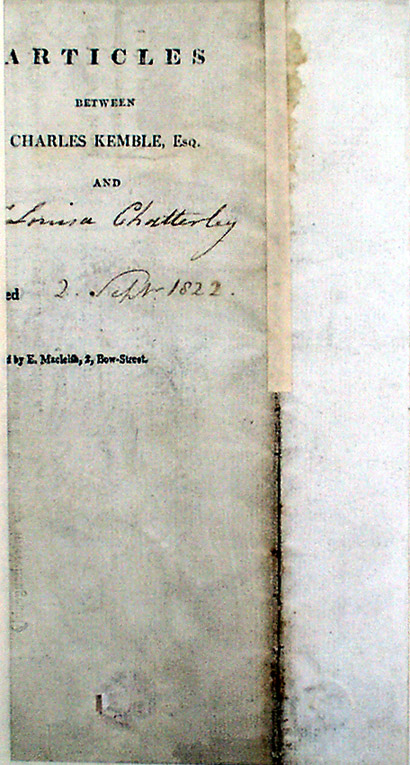 ARTICLES
BETWEEN
CHARLES KEMBLE, Esq.
AND
Louisa Chatterley
ed 2. Septr. 1822.
d by E. Macleish, 2, Bow-Street.